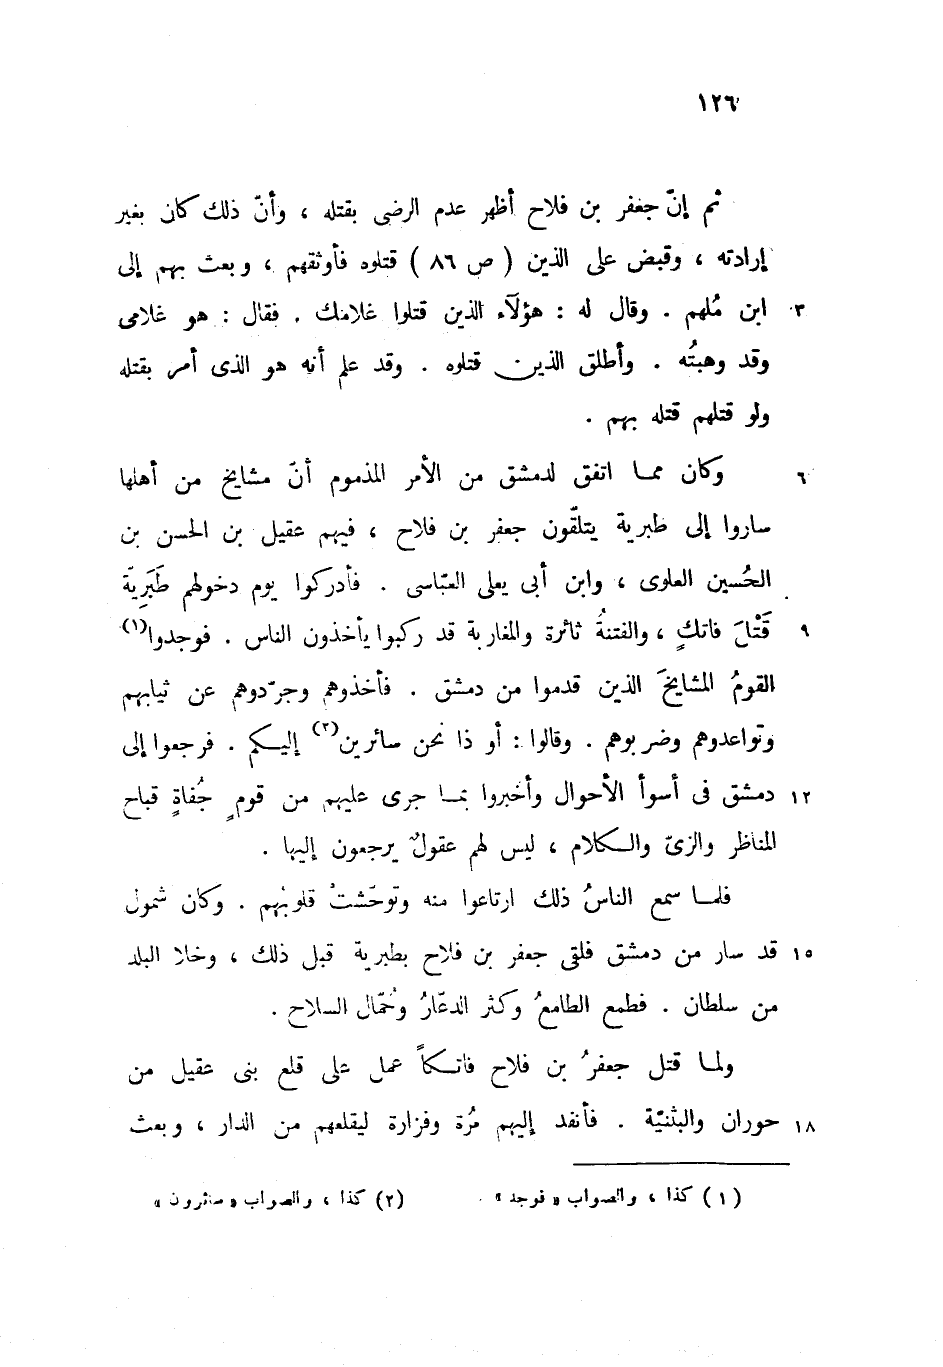 ١٢٦
ثم إنّ جعفر بن فلاح أظهر عدم الرضى بقتله ، وأنّ ذلك كان بغير
إرادته ، وقبض على الذين ( ص ٨٦ ) قتلوه فأوثقهم ، وبعث بهم إلى
٣ ابن مُلهم . وقال له : هؤلآء الذين قتلوا غلامك . فقال : هو غلامى
وقد وهبتُه . وأطلق الذين قتلوه . وقد علم أنه هو الذى أمر بقتله
ولو قتلهم قتله بهم .
٦ وكان مما اتفق لدمشق من الأمر المذموم أنّ مشايخ من أهلها
ساروا إلى طبرية يتلقّون جعفر بن فلاح ، فيهم عقيل بن الحسن بن
الحُسين العلوى ، وابن أبى يعلى العبّاسى . فأدركوا يوم دخولهم طَبَرِيّة
٩ قَتْلَ فاتكٍ ، والفتنةُ ثائرة والمغاربة قد ركبوا يأخذون الناس . فوجدوا(١)
القومُ المشايخَ الذين قدموا من دمشق . فأخذوهم وجرّدوهم عن ثيابهم
وتواعدوهم وضربوهم . وقالوا : أو ذا نحن سائرين(٢) إليكم . فرجعوا إلى
١٢ دمشق فى أسوأ الأحوال وأخبروا بما جرى عليهم من قومٍ جُفاةٍ قباح
المناظر والزىّ والكلام ، ليس لهم عقولٌ يرجعون إليها .
فلما سمع الناسُ ذلك ارتاعوا منه وتوحّشتْ قلوبُهم . وكان شمول
١٥ قد سار من دمشق فلقى جعفر بن فلاح بطبرية قبل ذلك ، وخلا البلد
من سلطان . فطمع الطامعُ وكثر الدعّارُ وحُمّال السلاح .
ولما قتل جعفرُ بن فلاح فاتكاً عمل على قلع بنى عقيل من
١٨ حوران والبثنيّة . فأنفد إليهم مُرّة وفزارة ليقلعهم من الدار ، وبعث
(١) كذا ، والصواب « فوجد » . (٢) كذا ، والصواب « سائرون »